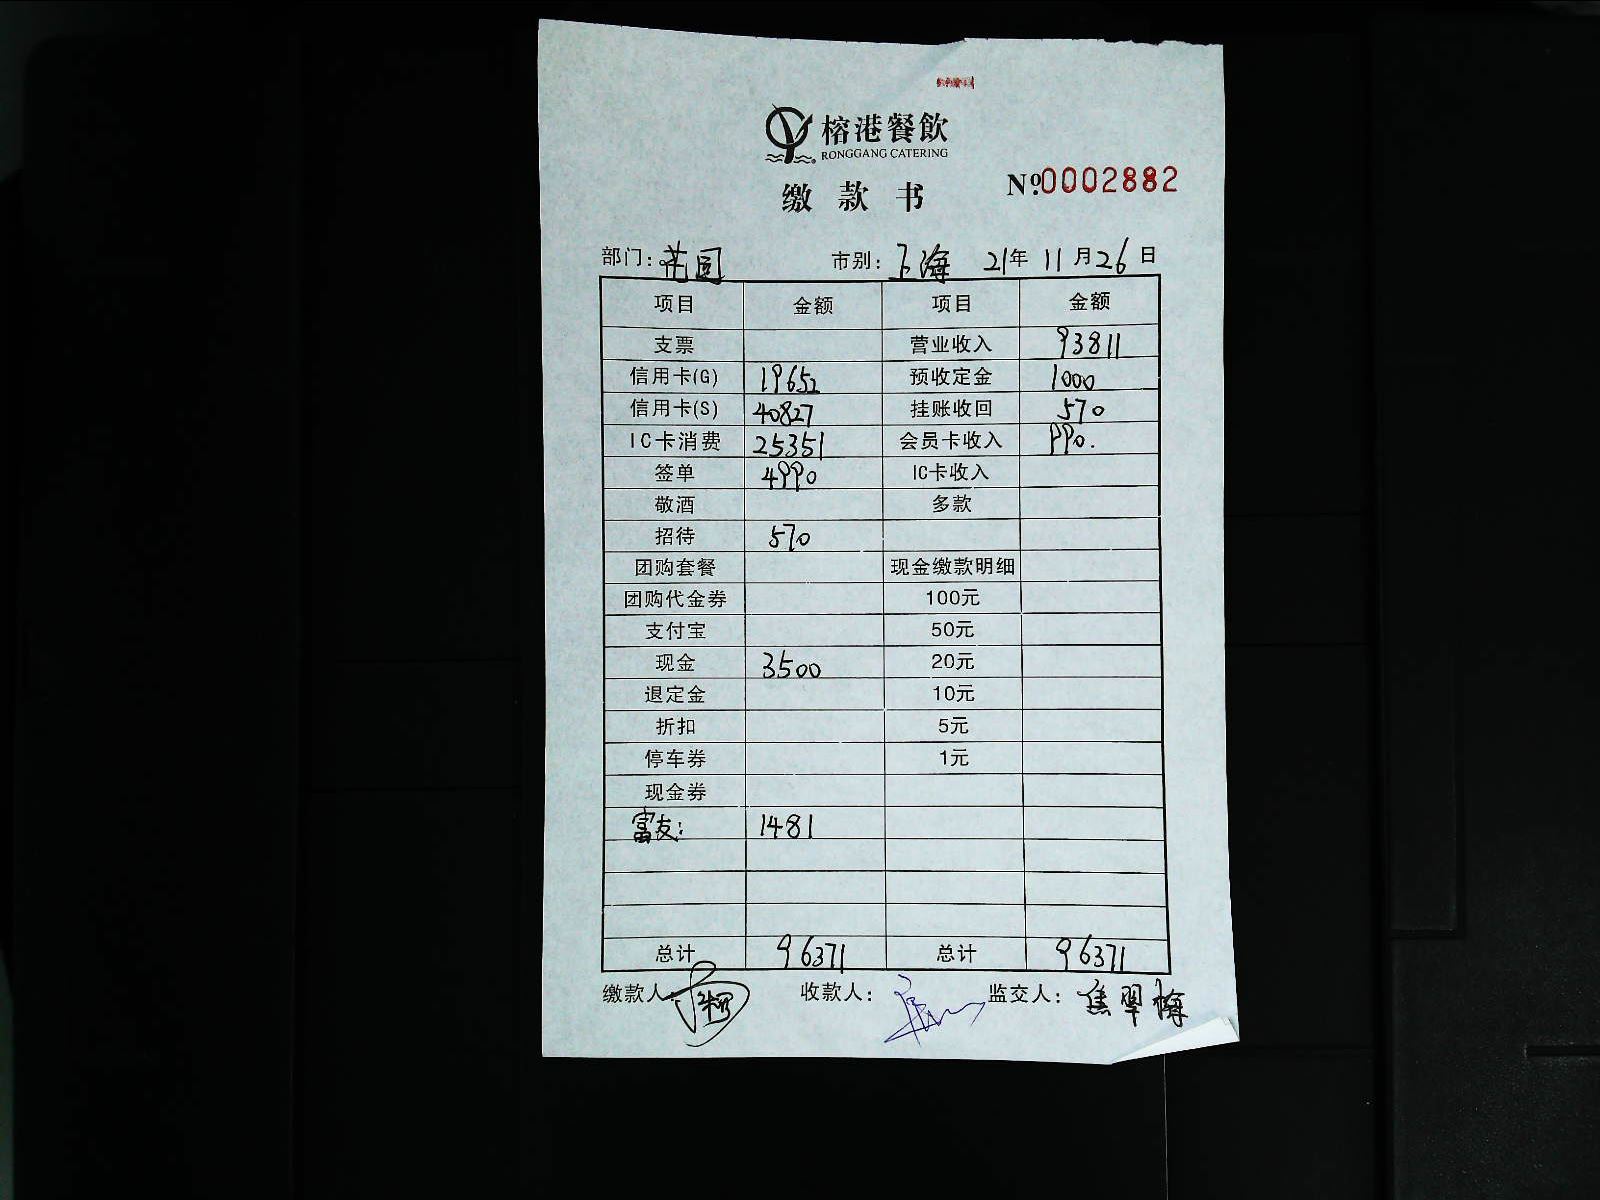 榕港餐飲
RONGGANG CATERING
缴款书
№0002882
部门：花园 市别：上海 21年11月26日
项目 金额 项目 金额
支票 营业收入 93811
信用卡(G) 19652 预收定金 1000
信用卡(S) 40827 挂账收回 570
IC卡消费 25351 会员卡收入 990.
签单 4990 IC卡收入
敬酒 多款
招待 570
团购套餐 现金缴款明细
团购代金券 100元
支付宝 50元
现金 3500 20元
退定金 10元
折扣 5元
停车券 1元
现金券
富友： 1481
总计 96371 总计 96371
缴款人： 收款人： 监交人：焦翠梅